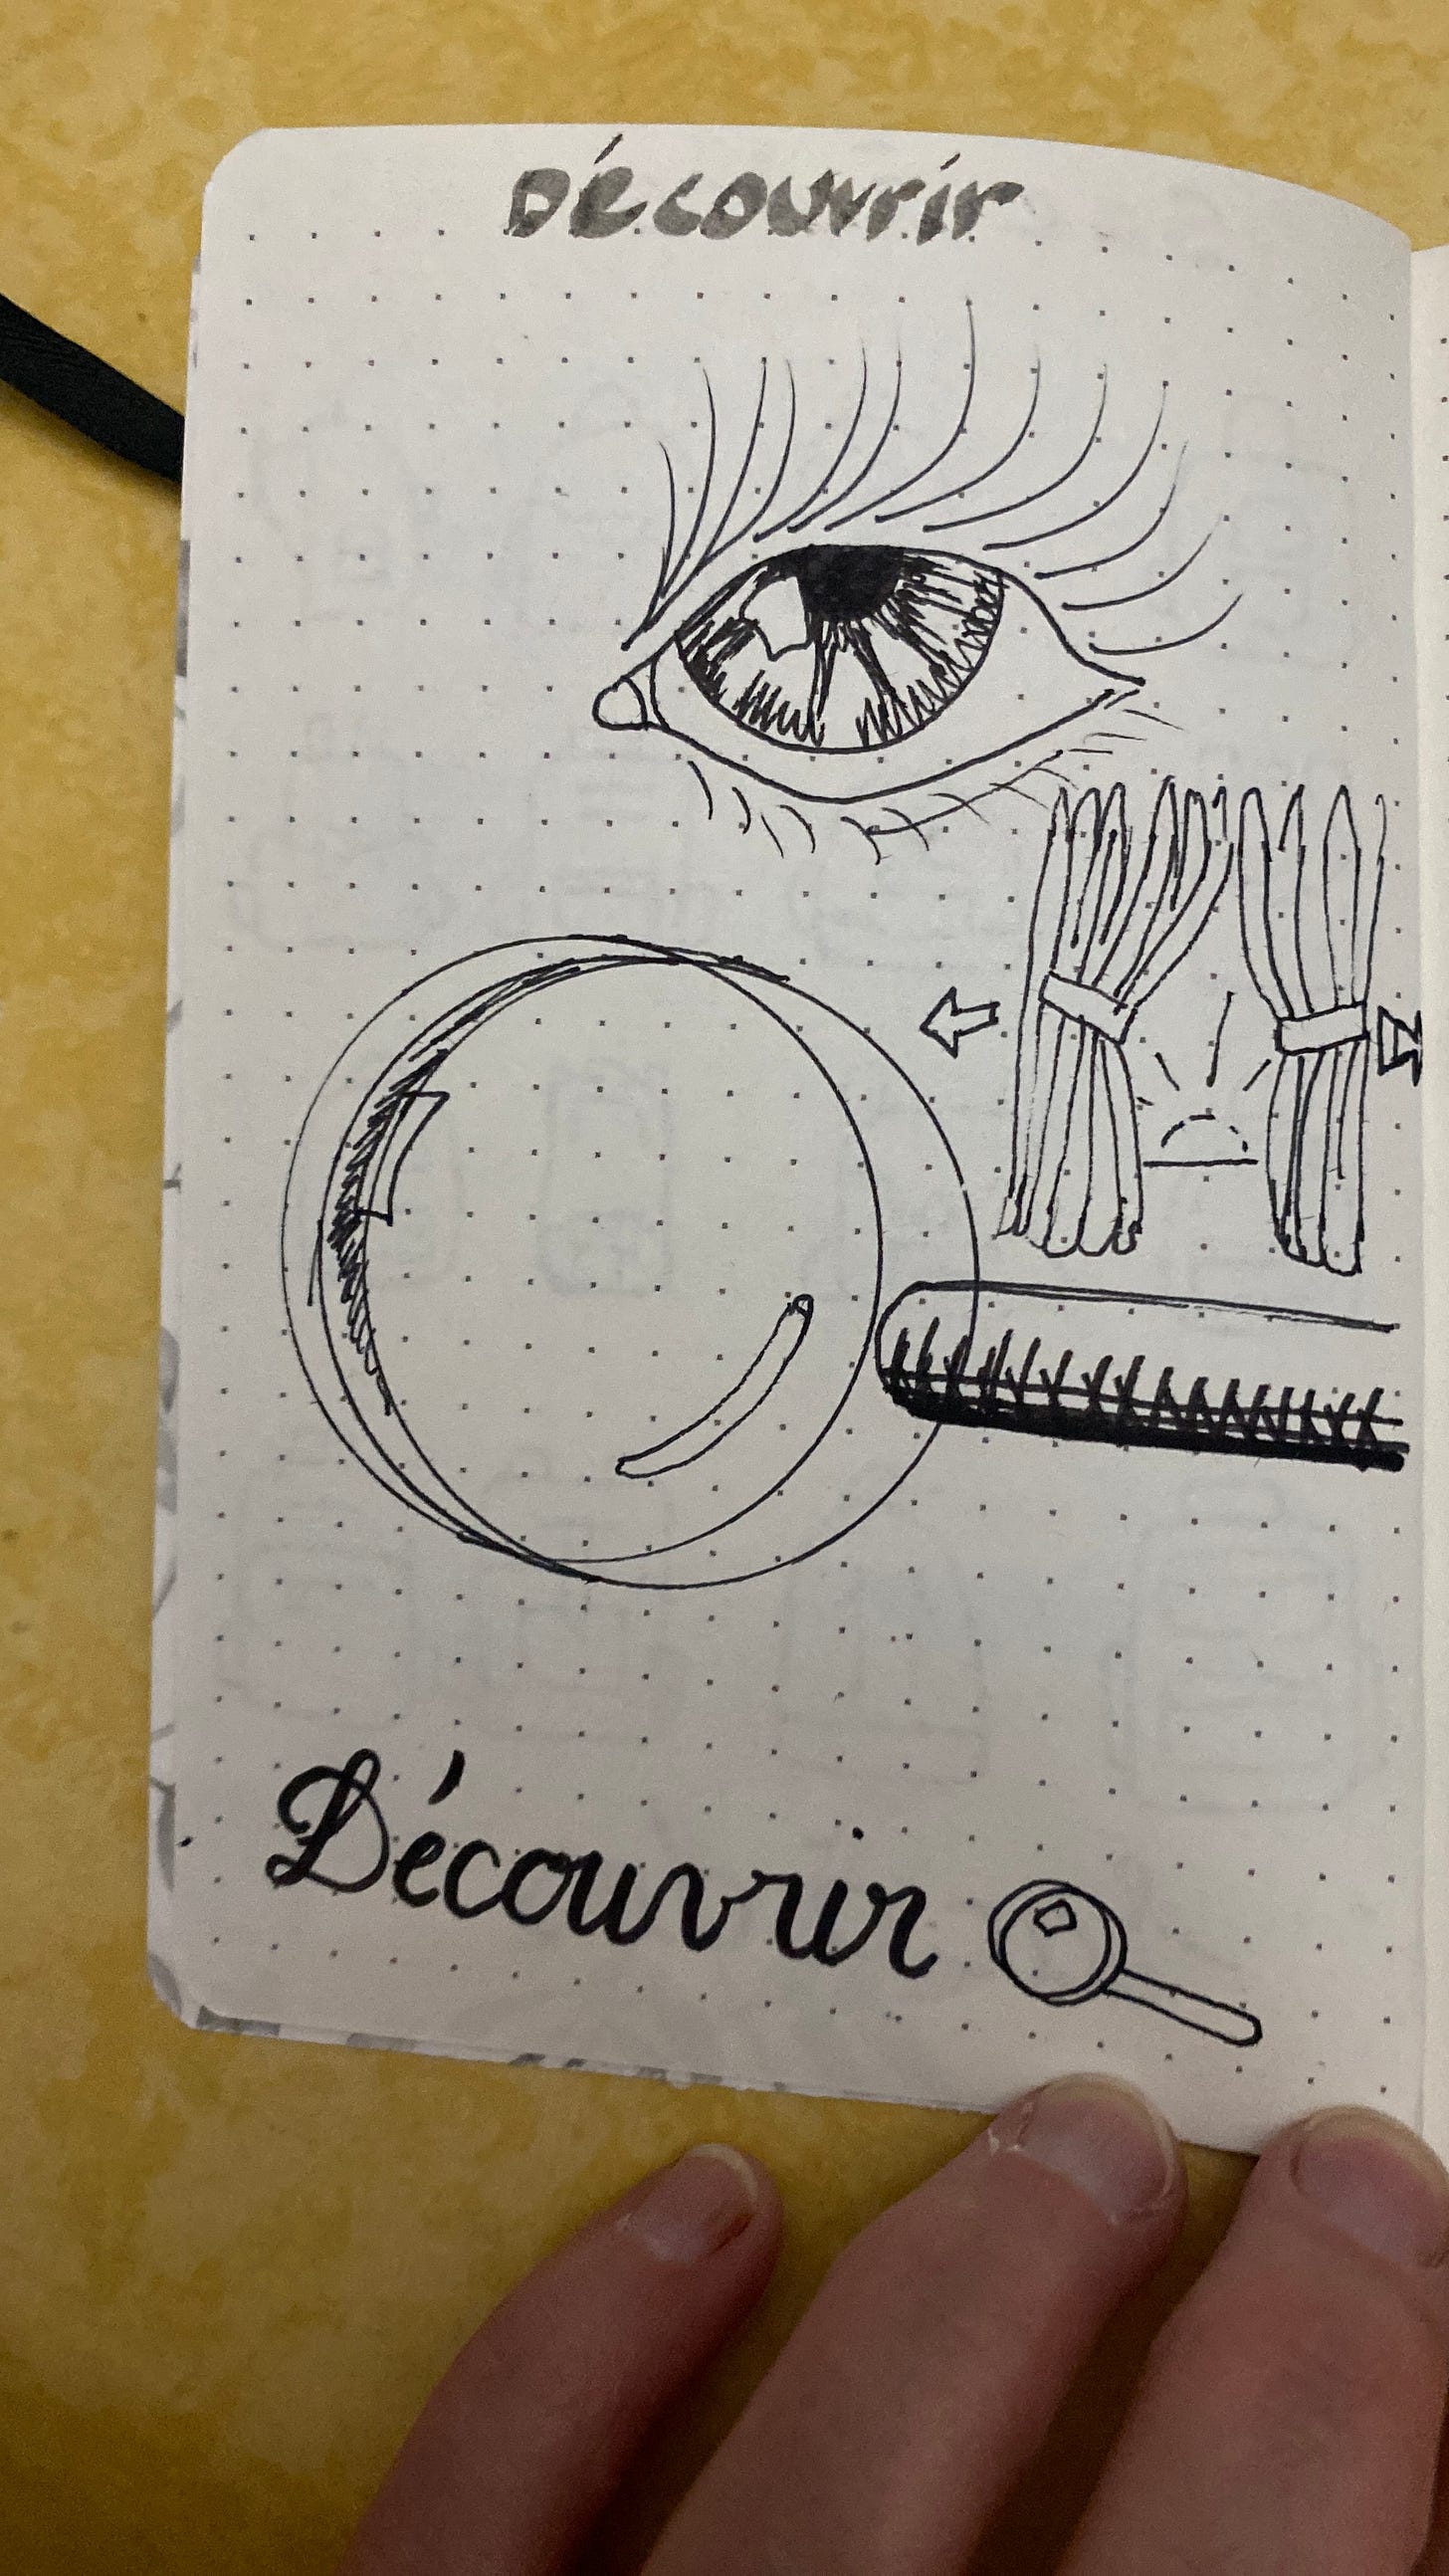 Découvrir
Découvrir